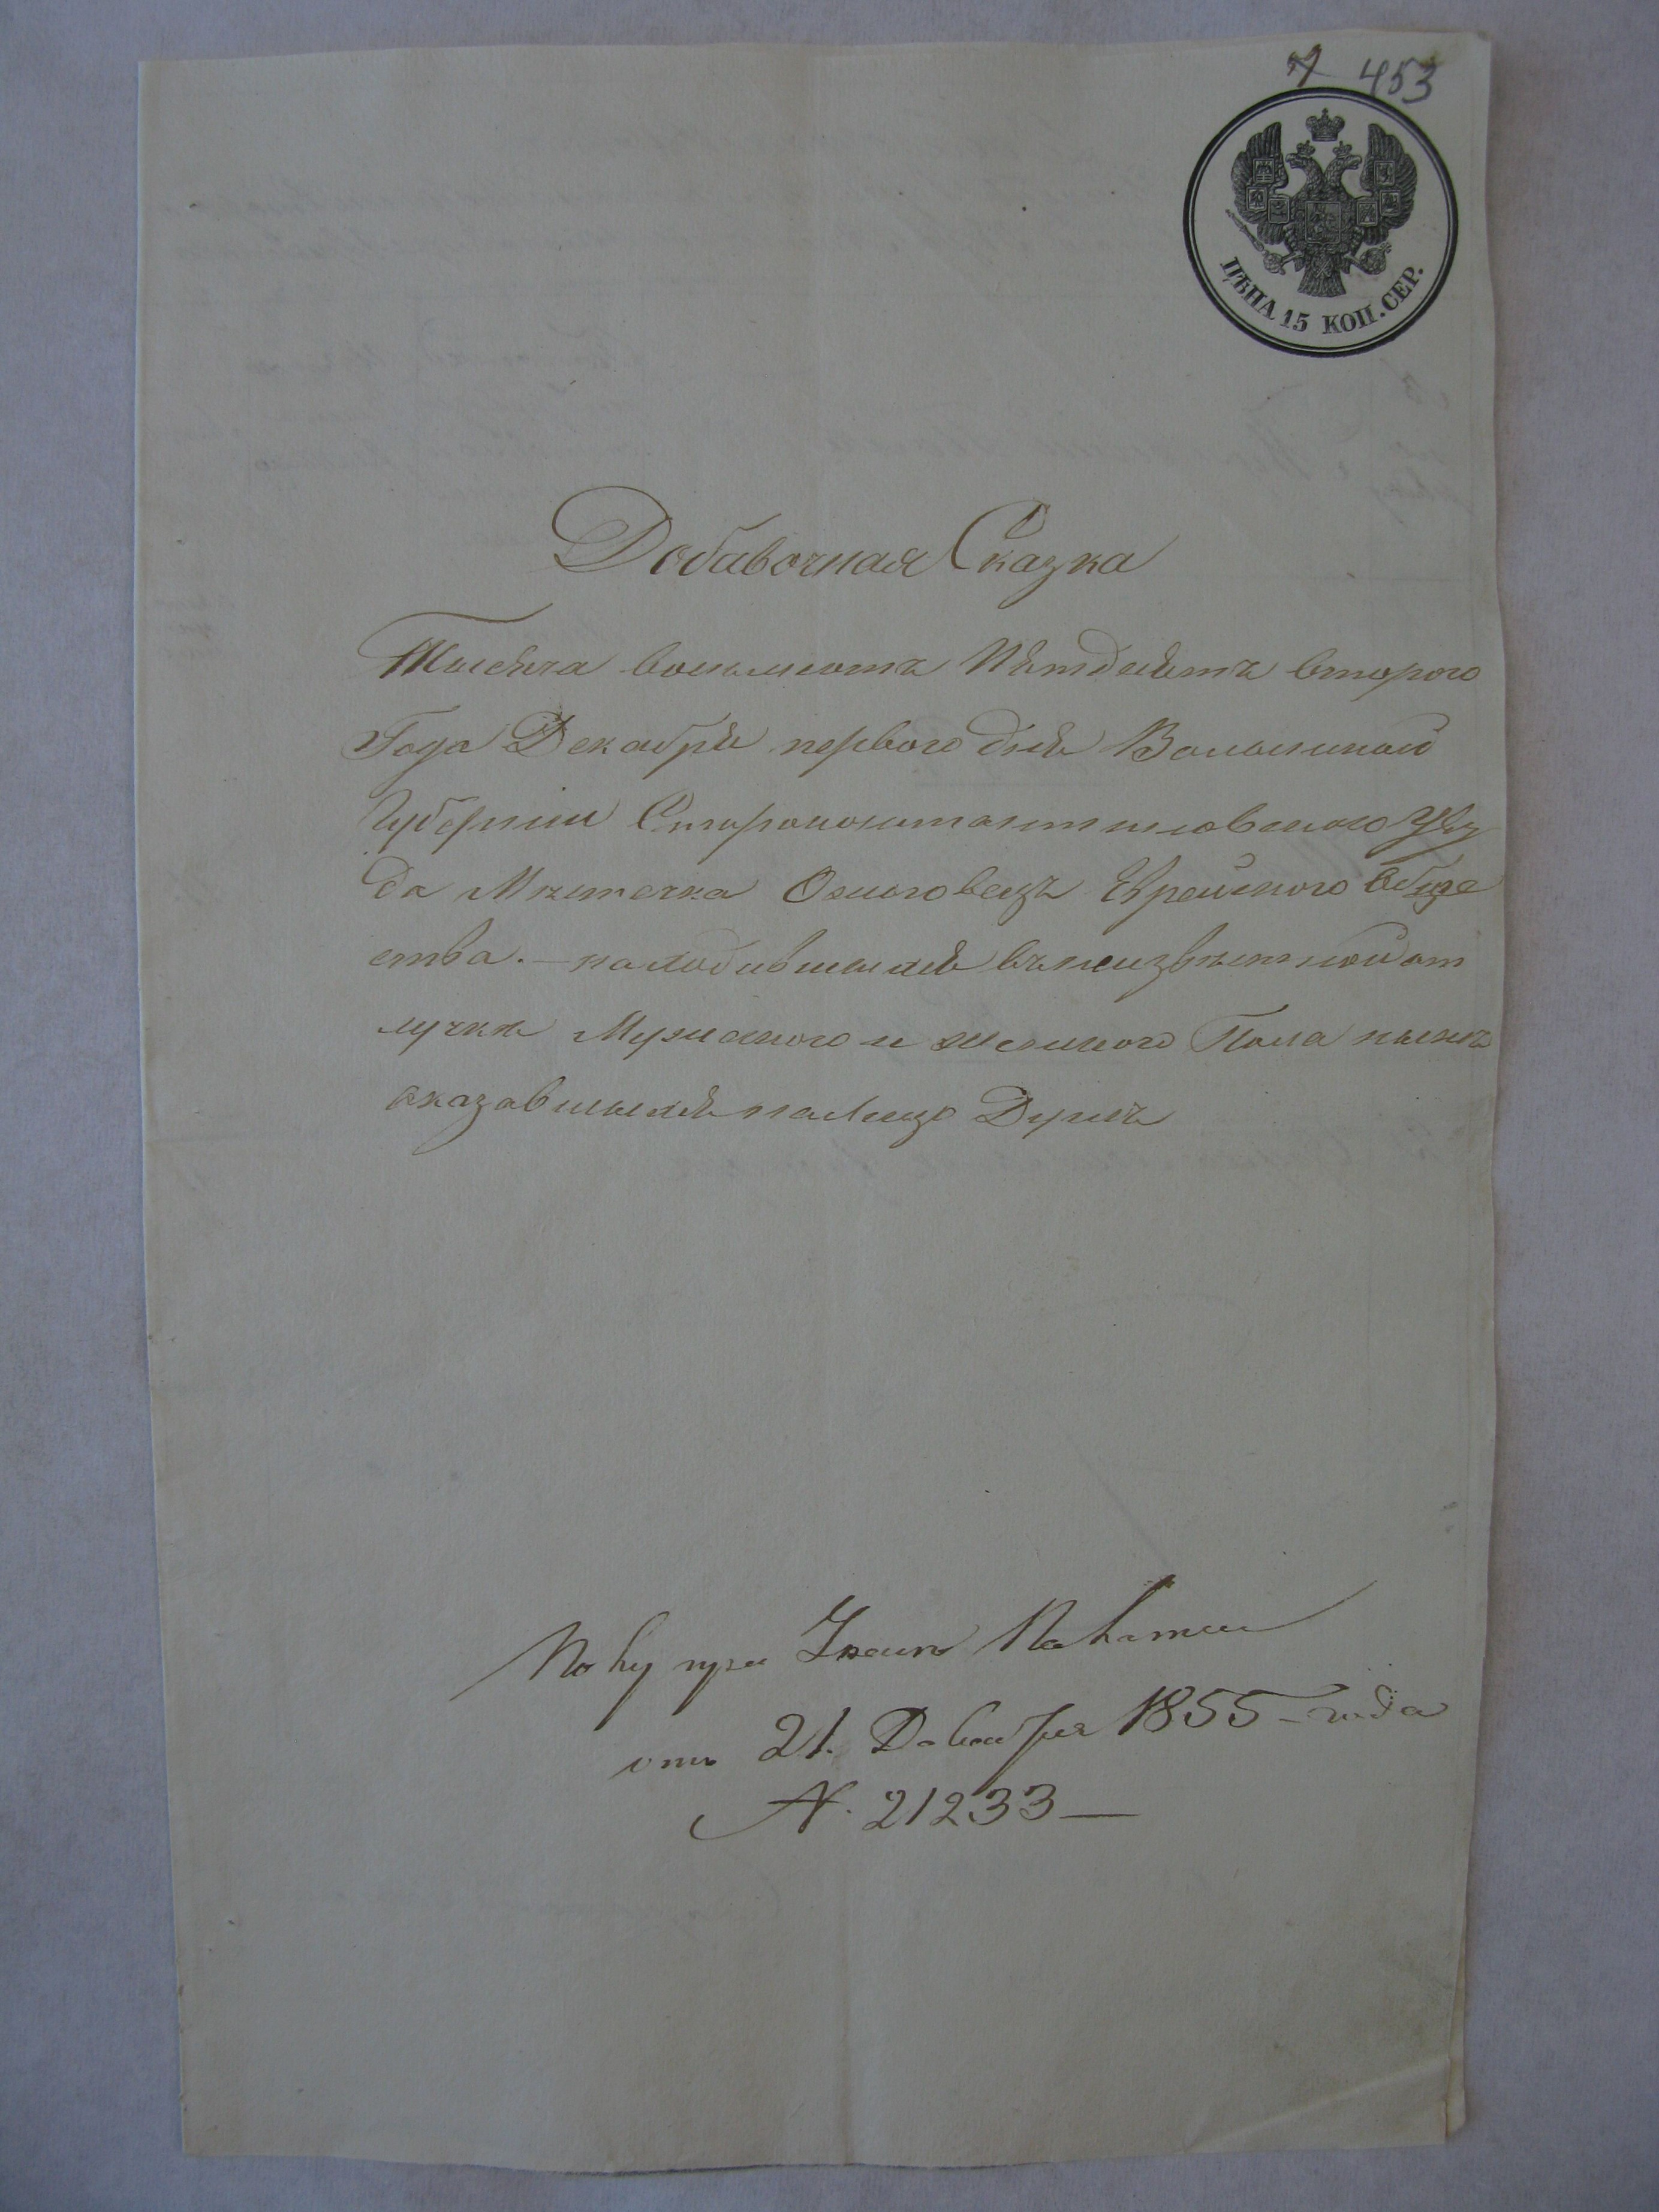 453
ЦѢНА 15 КОП. СЕР.
Добавочная Сказка
Тысяча восемьсотъ Пятдесятъ второго
Года Декабря первого дня Волынской
Губерніи Староконстантиновского Уѣз
да Мѣстечка Ожоговецъ Еврейского Обще
ства. — находившыяся въ неизвѣстной от
лучкѣ Мужеского и Женского Пола нынѣ
оказавшыяся на Лицо Душъ
По
отъ 21. Декабря 1855 - года
N. 21233 —